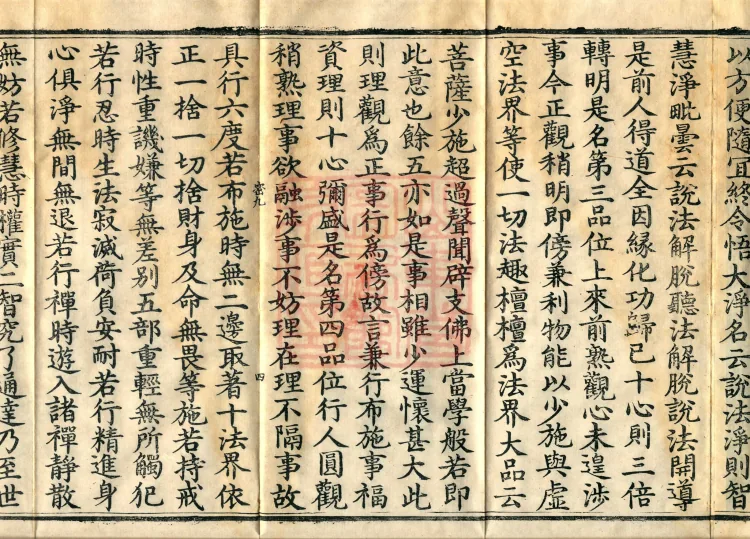 以方便隨宜終令悟大淨名云說法淨則智
慧淨毗曇云說法解脫聽法解脫說法開導
是前人得道全因緣化功歸己十心則三倍
轉明是名第三品位上來前熟觀心未遑涉
事今正觀稍明即傍兼利物能以少施與虛
空法界等使一切法趣檀檀爲法界大品云
菩薩少施超過聲聞辟支佛上當學般若即
此意也餘五亦如是事相雖少運懷甚大此
則理觀爲正事行爲傍故言兼行布施事福
資理則十心彌盛是名第四品位行人圓觀
稍熟理事欲融涉事不妨理在理不隔事故
壹九
四
具行六度若布施時無二邊取著十法界依
正一捨一切捨財身及命無畏等施若持戒
時性重譏嫌等無差別五部重輕無所觸犯
若行忍時生法寂滅荷負安耐若行精進身
心俱淨無間無退若行禪時遊入諸禪靜散
無妨若修慧時權實二智究了通達乃至世